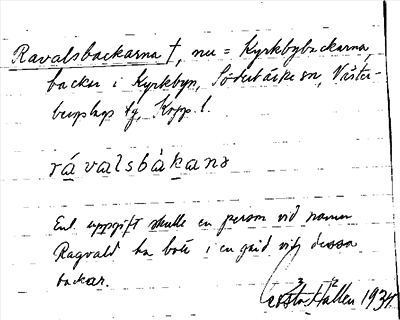 Ravalsbackarna †, nu = Kyrkbybackarna,
backar i Kyrkbyn, Söderbärke sn, Väster-
bergslags fg, Kopp. l.
rávalsbàkanɘ
Enl. uppgift skulle en person vid namn
Ragvald ha bott i en gård vid dessa
backar.
Hallen 1934